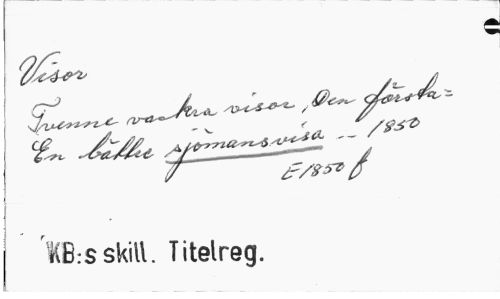 Visor
Tvenne vackra visor, Den första =
En bättre sjömansvisa -- 1850
E 1850 f
KB:s skill. Titelreg.